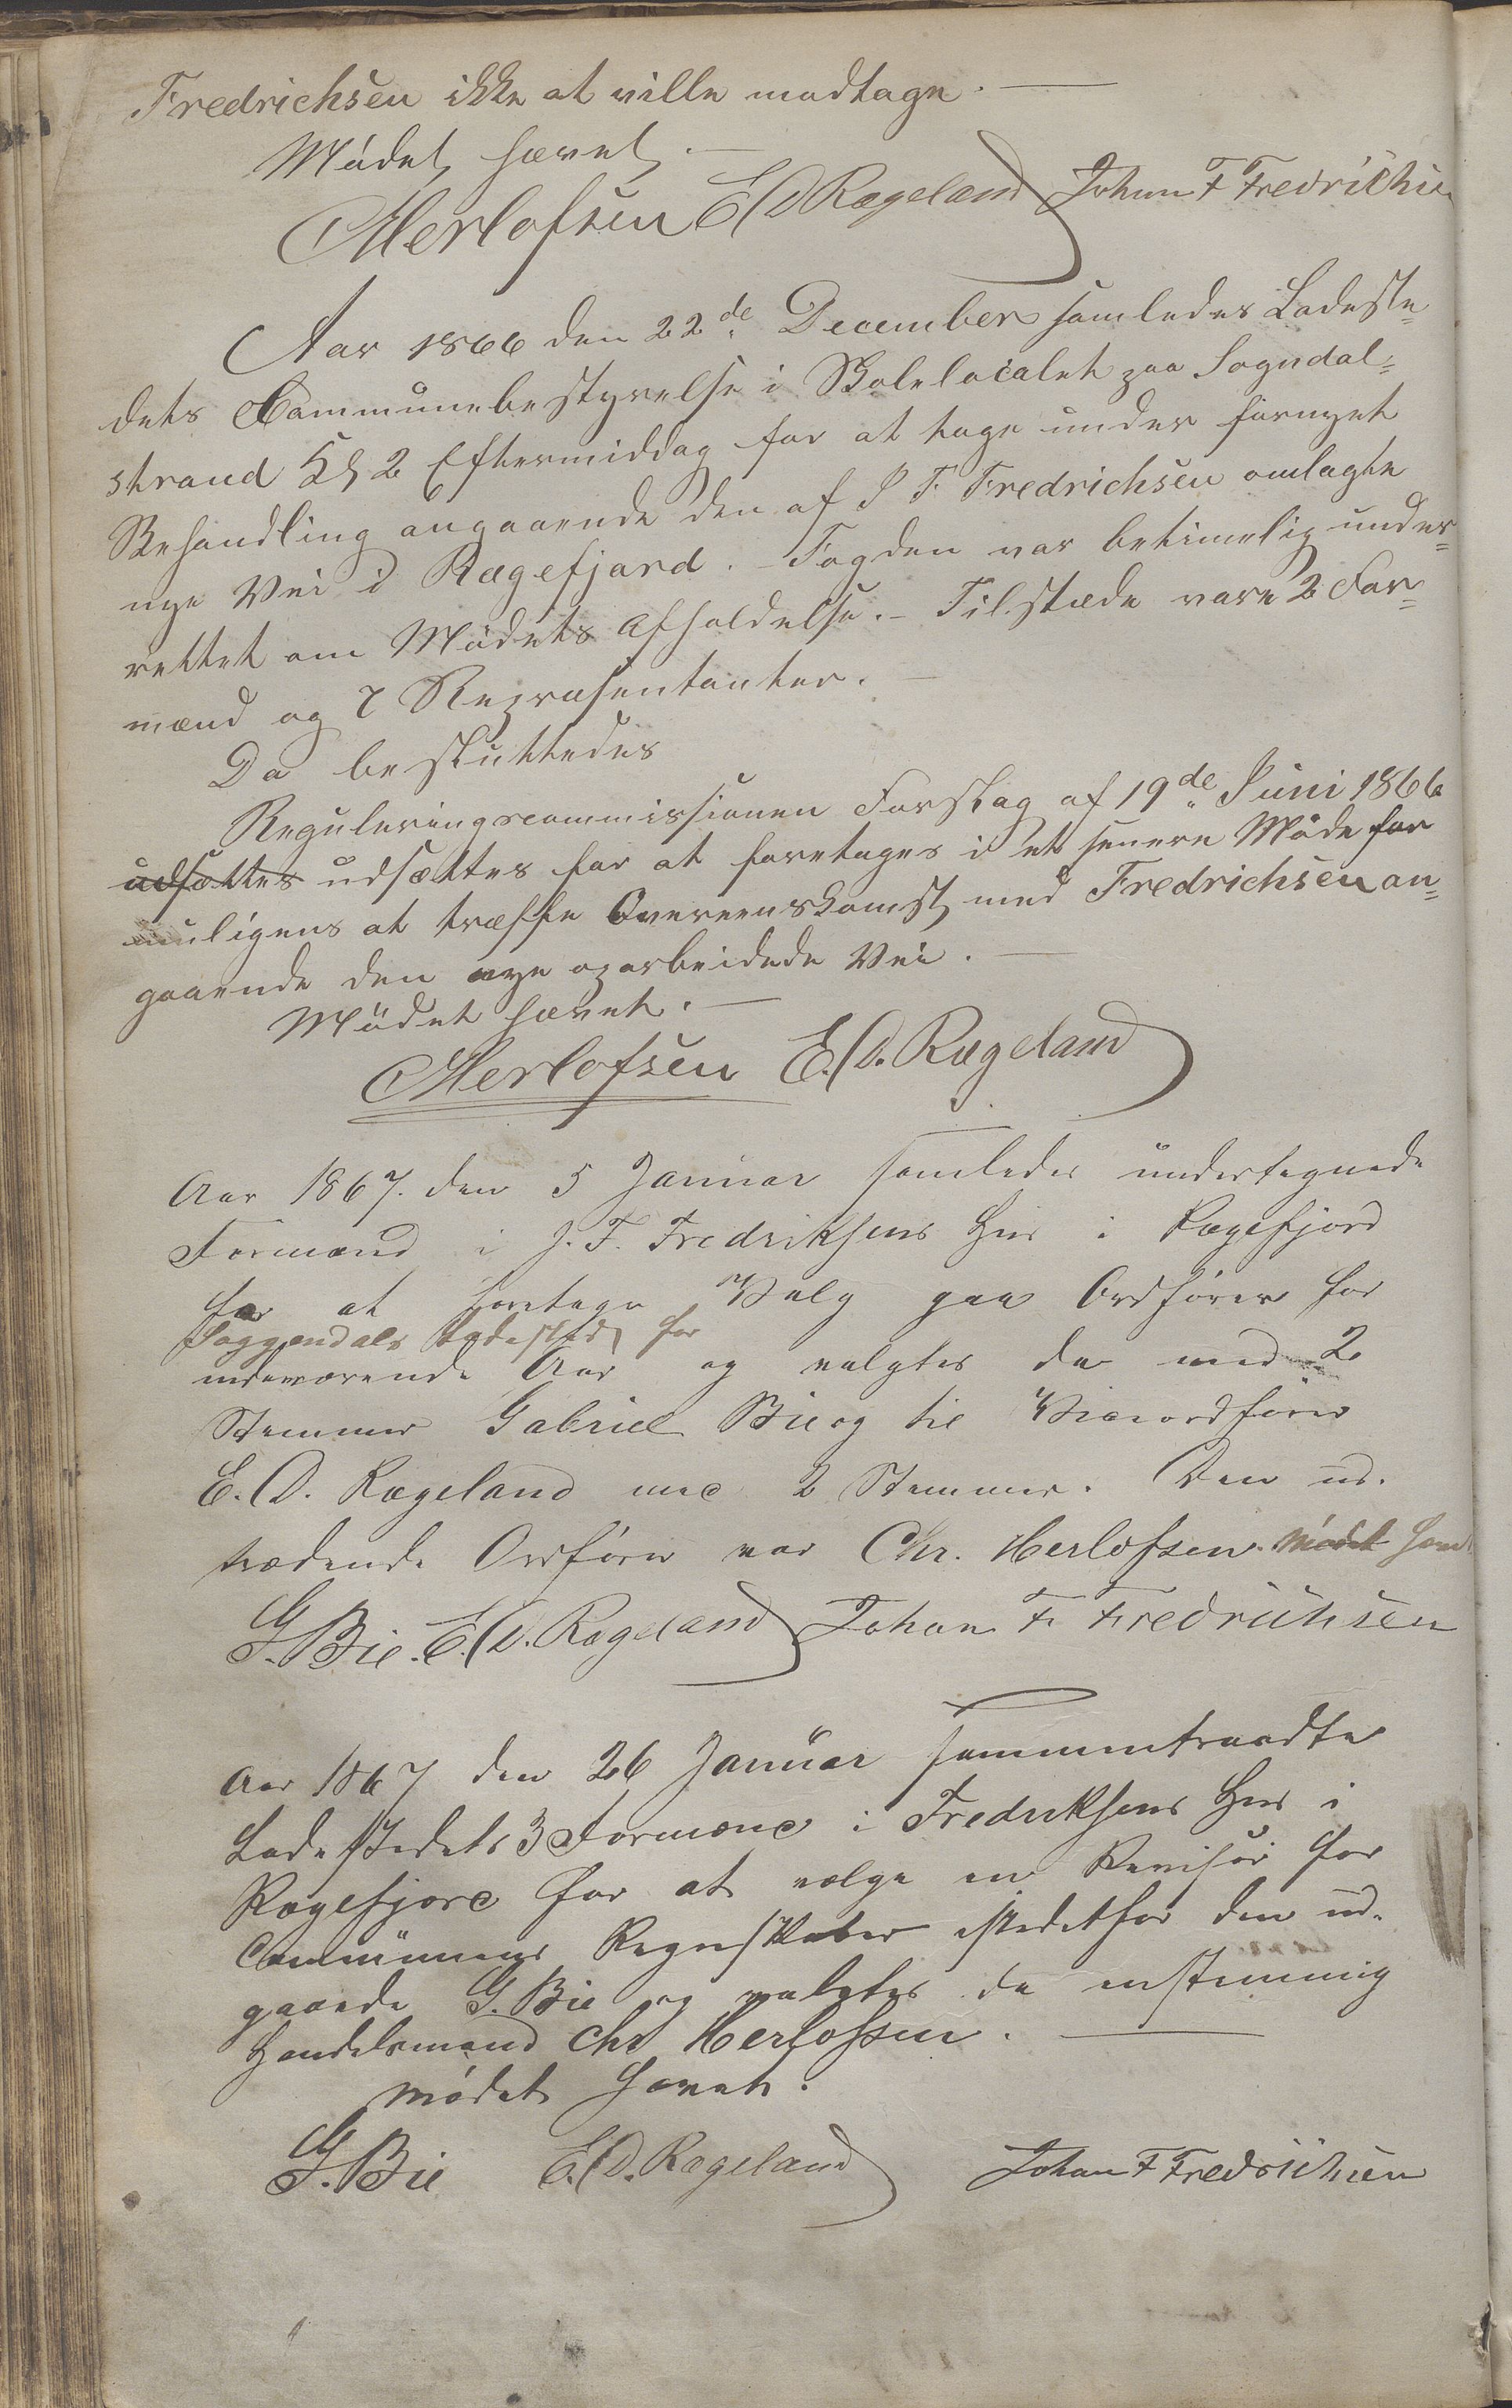 Fredrichsen ikke at ville modtage. —
Mødet hævet. —
CHerlofsen E. D. Rægeland Johan F Fredrichsen
Aar 1866 den 22de December samledes Ladeste-
dets Communebestyrelse i Skolelocalet paa Sogndal-
strand Kl 2 Eftermiddag for at tage under fornyet
Behandling angaaende den af J F. Fredrichsen omlagte
nye Vei i Rægefjord. - Fogden var betimelig under-
rettet om Mødets Afholdelse. - Tilstæde vare 2 For-
mænd og 7 Repræsentanter. —
Da besluttedes
Reguleringscommissionen Forslag af 19de Juni 1866
udsættes udsættes for at foretages i et senere Møde for
muligens at træffe Overeenskomst med Fredrichsen an-
gaaende den nye oparbeidede Vei. —
Mødet hævet. —
CHerlofsen E. D. Rægeland
Aar 1867. den 5 Januar samledes undertegnede
Formænd i J. F. Fredriksens Hus i Rægefjord
for at foretage Valg paa Ordfører for
Soggendals Ladested for
indeværende Aar og valgtes da med 2
Stemmer Gabriel Bie og til Viceordfører
E. D. Rægeland med 2 Stemmer. Den ud-
trædende Ordfører var Chr. Herlofsen. Mødet hævet
G. Bie. E. D. Rægeland Johan F. Fredrichsen
Aar 1867 den 26 Januar sammentraadte
Ladestedets 3 Formænd i Fredriksens Hus i
Rægefjord for at vælge en Revisor for
Communens Regnskaber istedetfor den ud-
gaaede G. Bie og valgtes da enstemmig
Handelsmand Chr Herlofsen. —
Mødet hævet.
G. Bie E. D. Rægeland Johan F Fredrichsen